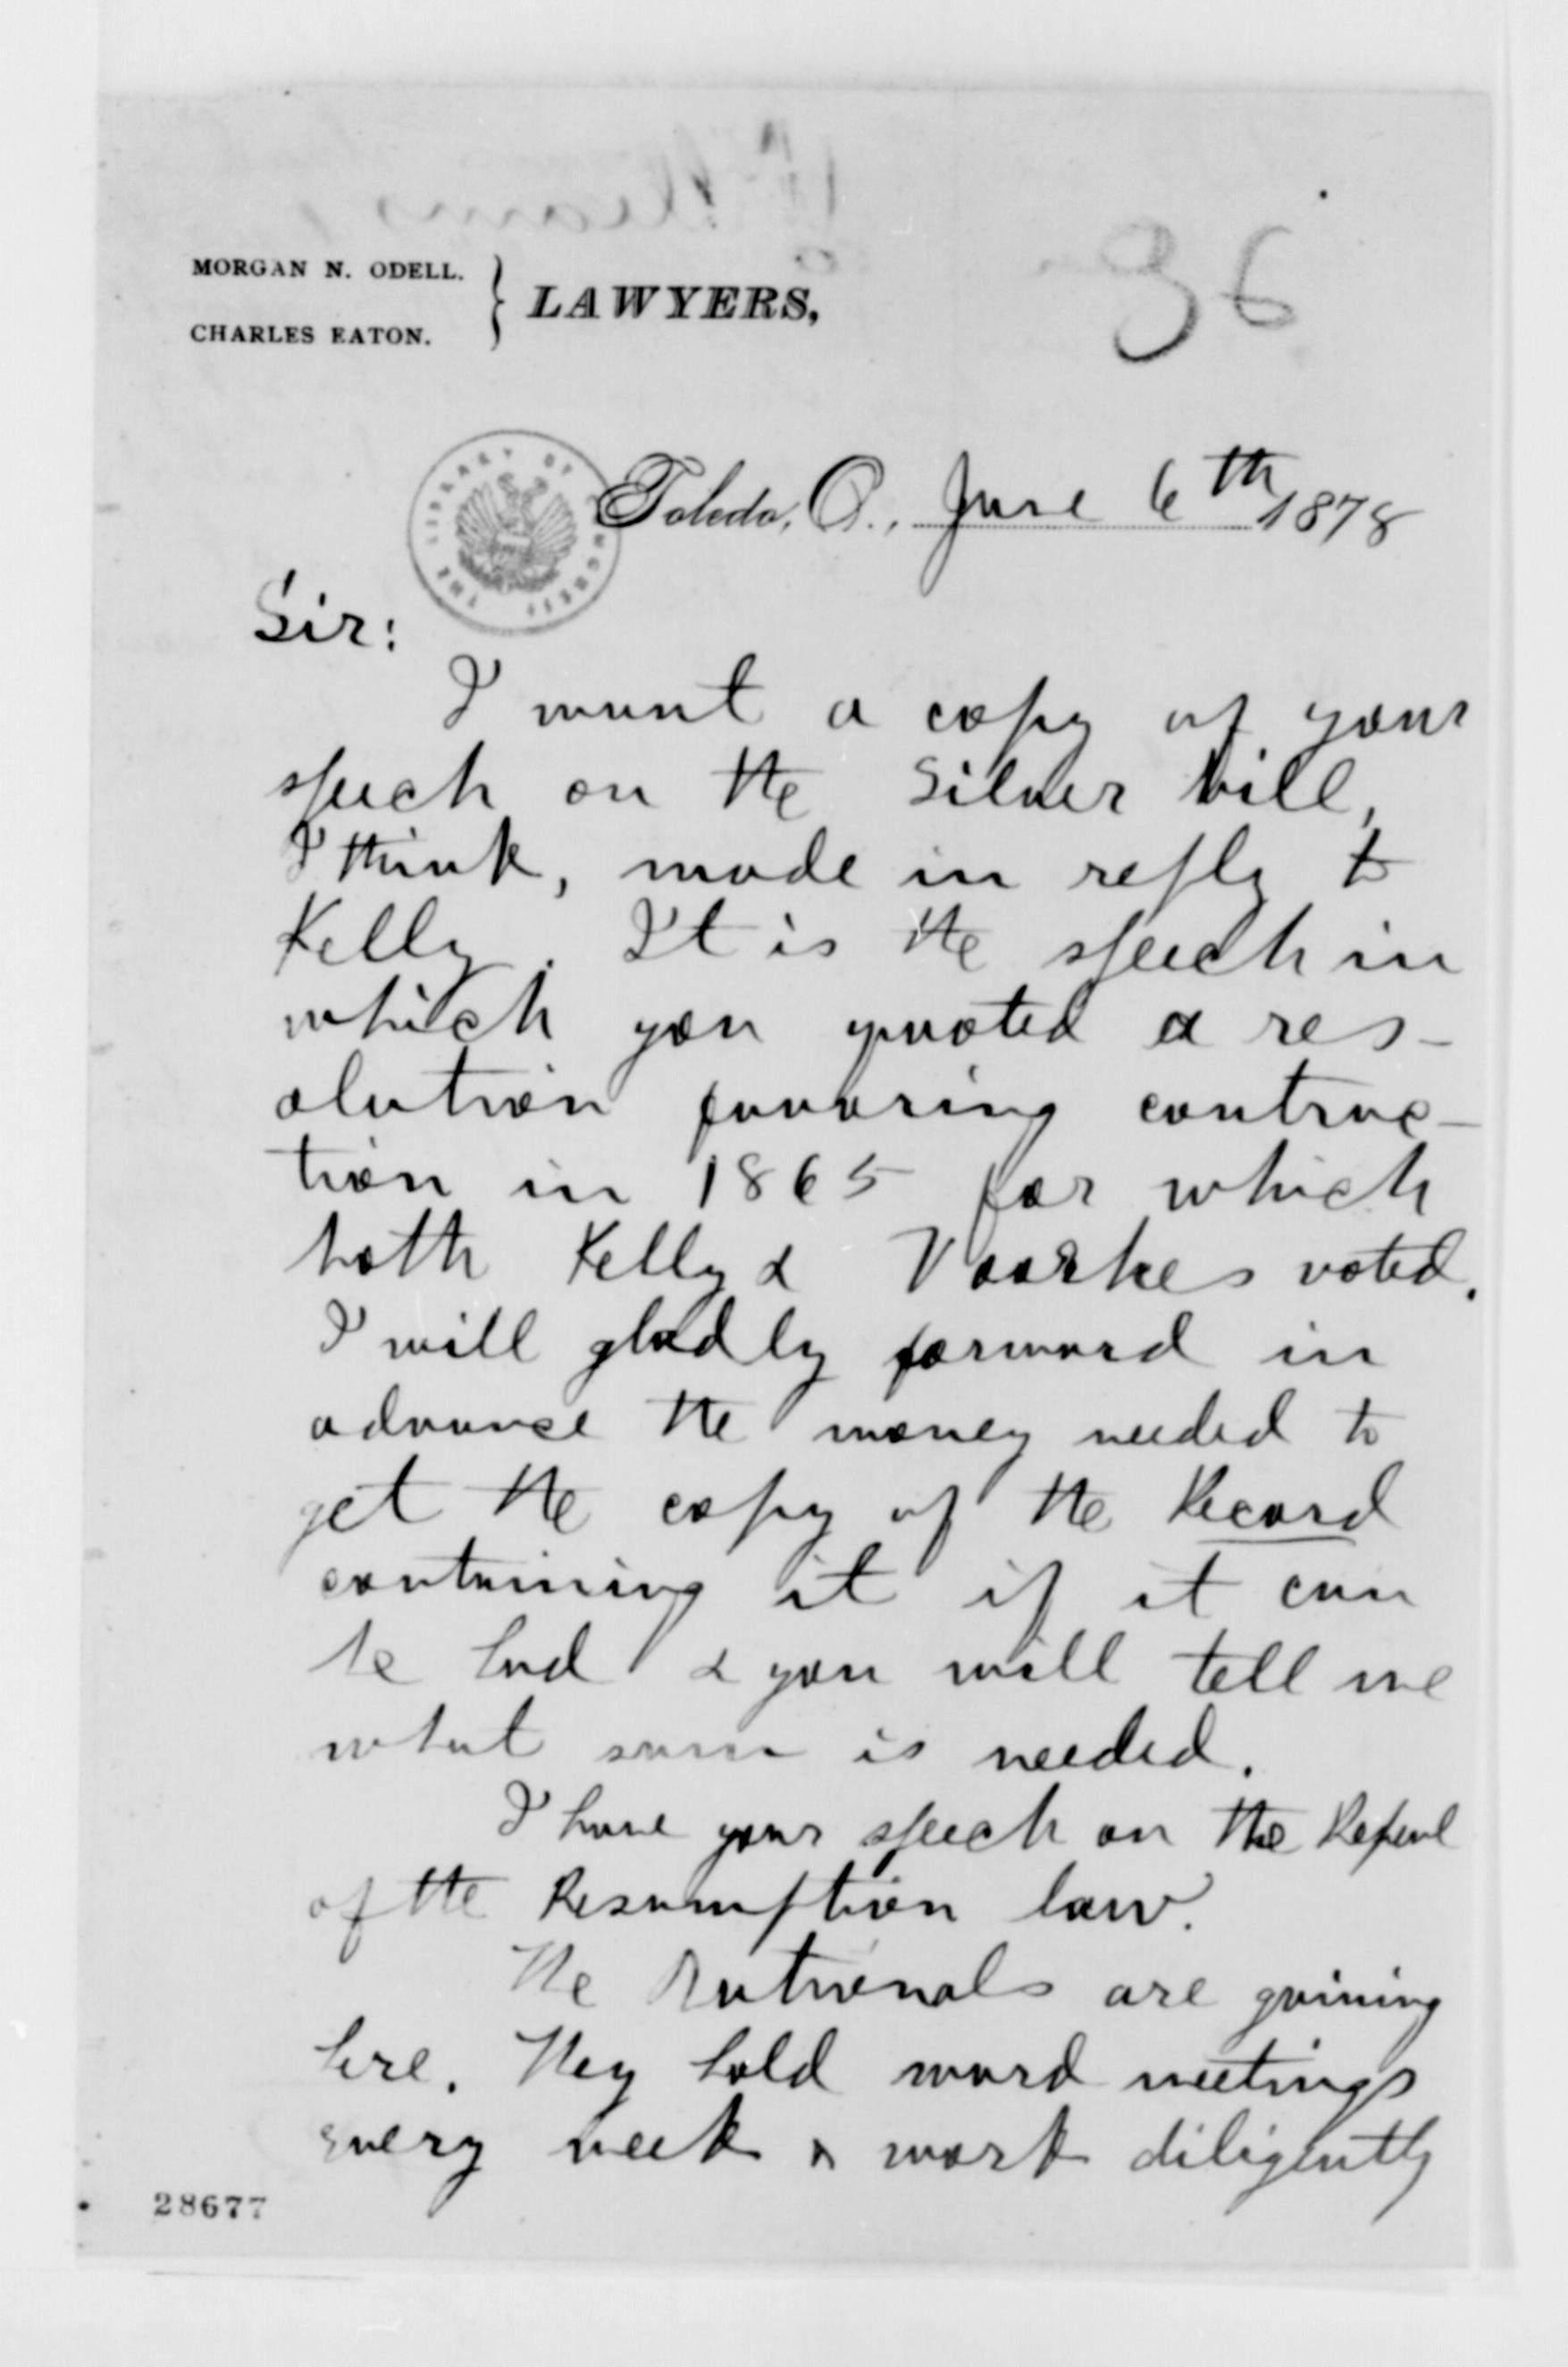 36
MORGAN N. ODELL.
CHARLES EATON.
} LAWYERS,
THE LIBRARY OF CONGRESS
Toledo, O., June 6th 1878
Sir:
I want a copy of your
speech on the Silver bill,
I think, made in reply to
Kelly. It is the speech in
which you quoted a res-
olution favoring contrac-
tion in 1865 for which
both Kelly & Voorhes voted.
I will gladly forward in
advance the money needed to
get the copy of the Record
containing it if it can
be had & you will tell me
what sum is needed.
I have your speech on the Repeal
of the Resumption law.
The Nationals are gaining
here. They hold ward meetings
every week & work diligently
28677